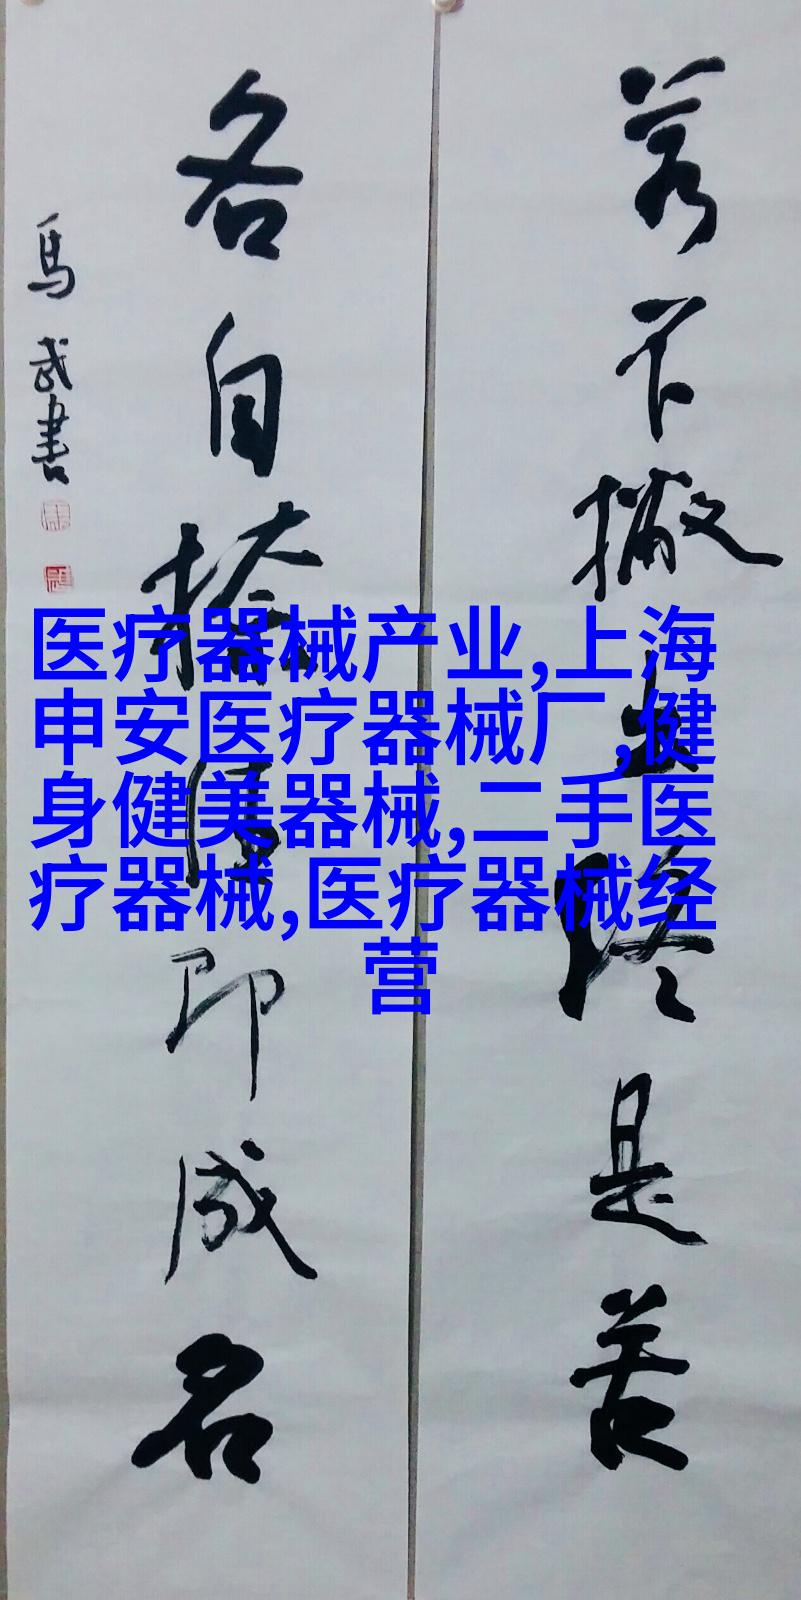 若不撇出终是苦
各自捺住即成名
馬武書
医疗器械产业,上海
申安医疗器械厂,健
身健美器械,二手医
疗器械,医疗器械经
营